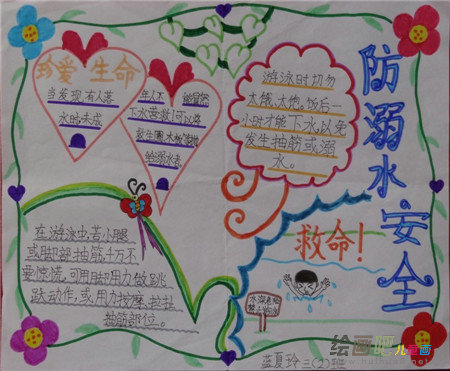 珍爱 生命
当发现有人落
水时,未成
年人不
下水营救!可以将
救生圈、木板
给溺水者
游泳时切勿
太饿、太饱。饭后一
小时才能下水,以免
发生抽筋或溺
水。
防溺水安全
在游泳中,若小腿
或脚部抽筋,千万不
要惊慌,可用脚用力做跳
跃动作,或用力按摩、拉扯
抽筋部位。
救命!
水深危险
绘画吧 儿童画
蓝夏玲 三(2)班